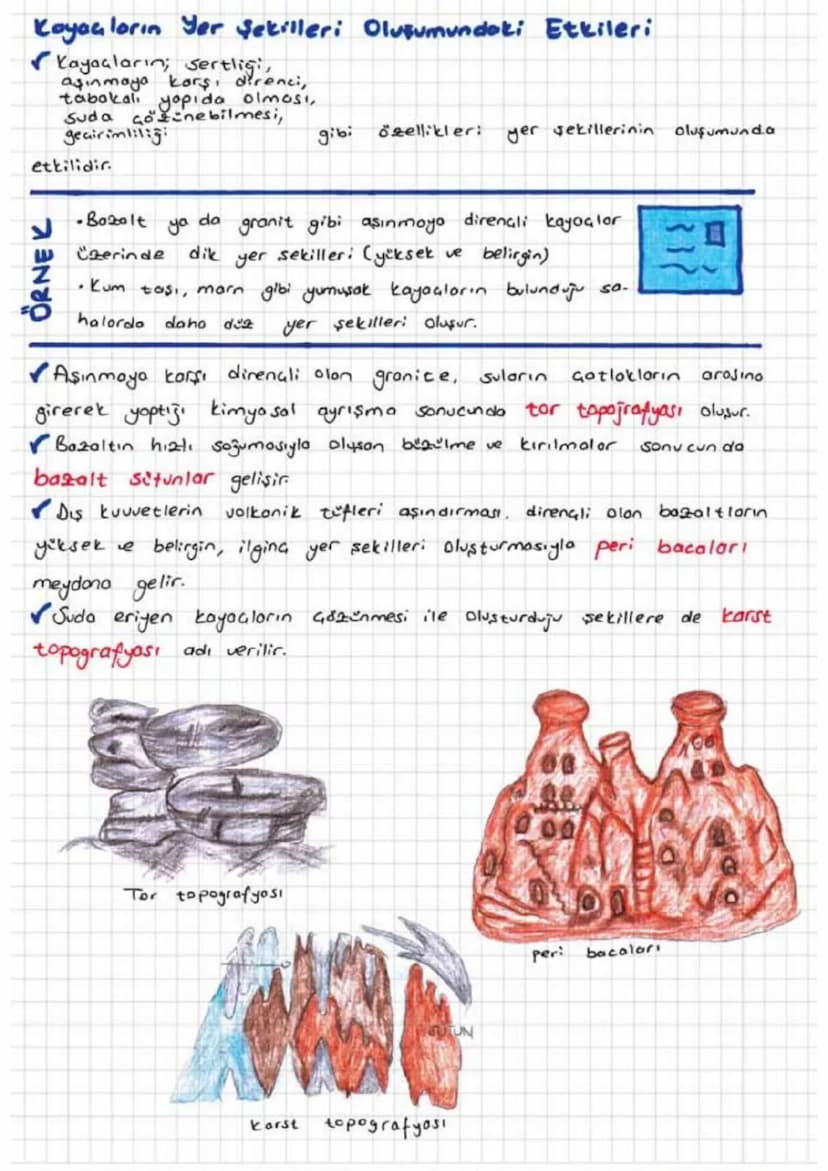 Kayaçların Yer Şekilleri Oluşumundaki Etkileri
✓ Kayaçların; sertliği,
aşınmaya karşı direnci,
tabakalı yapıda olması,
suda çözünebilmesi,
geçirimliliği gibi özellikleri yer şekillerinin oluşumunda
etkilidir.
ÖRNEK
• Bazalt ya da granit gibi aşınmaya dirençli kayaçlar
üzerinde dik yer şekilleri (yüksek ve belirgin)
• Kum taşı, marn gibi yumuşak kayaçların bulunduğu sa-
halarda daha düz yer şekilleri oluşur.
✓ Aşınmaya karşı dirençli olan granite, suların çatlakların arasına
girerek yaptığı kimyasal ayrışma sonucunda tor topoğrafyası oluşur.
✓ Bazaltın hızlı soğumasıyla oluşan büzülme ve kırılmalar sonucunda
bazalt sütunlar gelişir.
✓ Dış kuvvetlerin volkanik tüfleri aşındırması, dirençli olan bazaltların
yüksek ve belirgin, ilginç yer şekilleri oluşturmasıyla peri bacaları
meydana gelir.
✓ Suda eriyen kayaçların çözünmesi ile oluşturduğu şekillere de karst
topografyası adı verilir.
Tor topografyası
peri bacaları
SÜTUN
karst topografyası